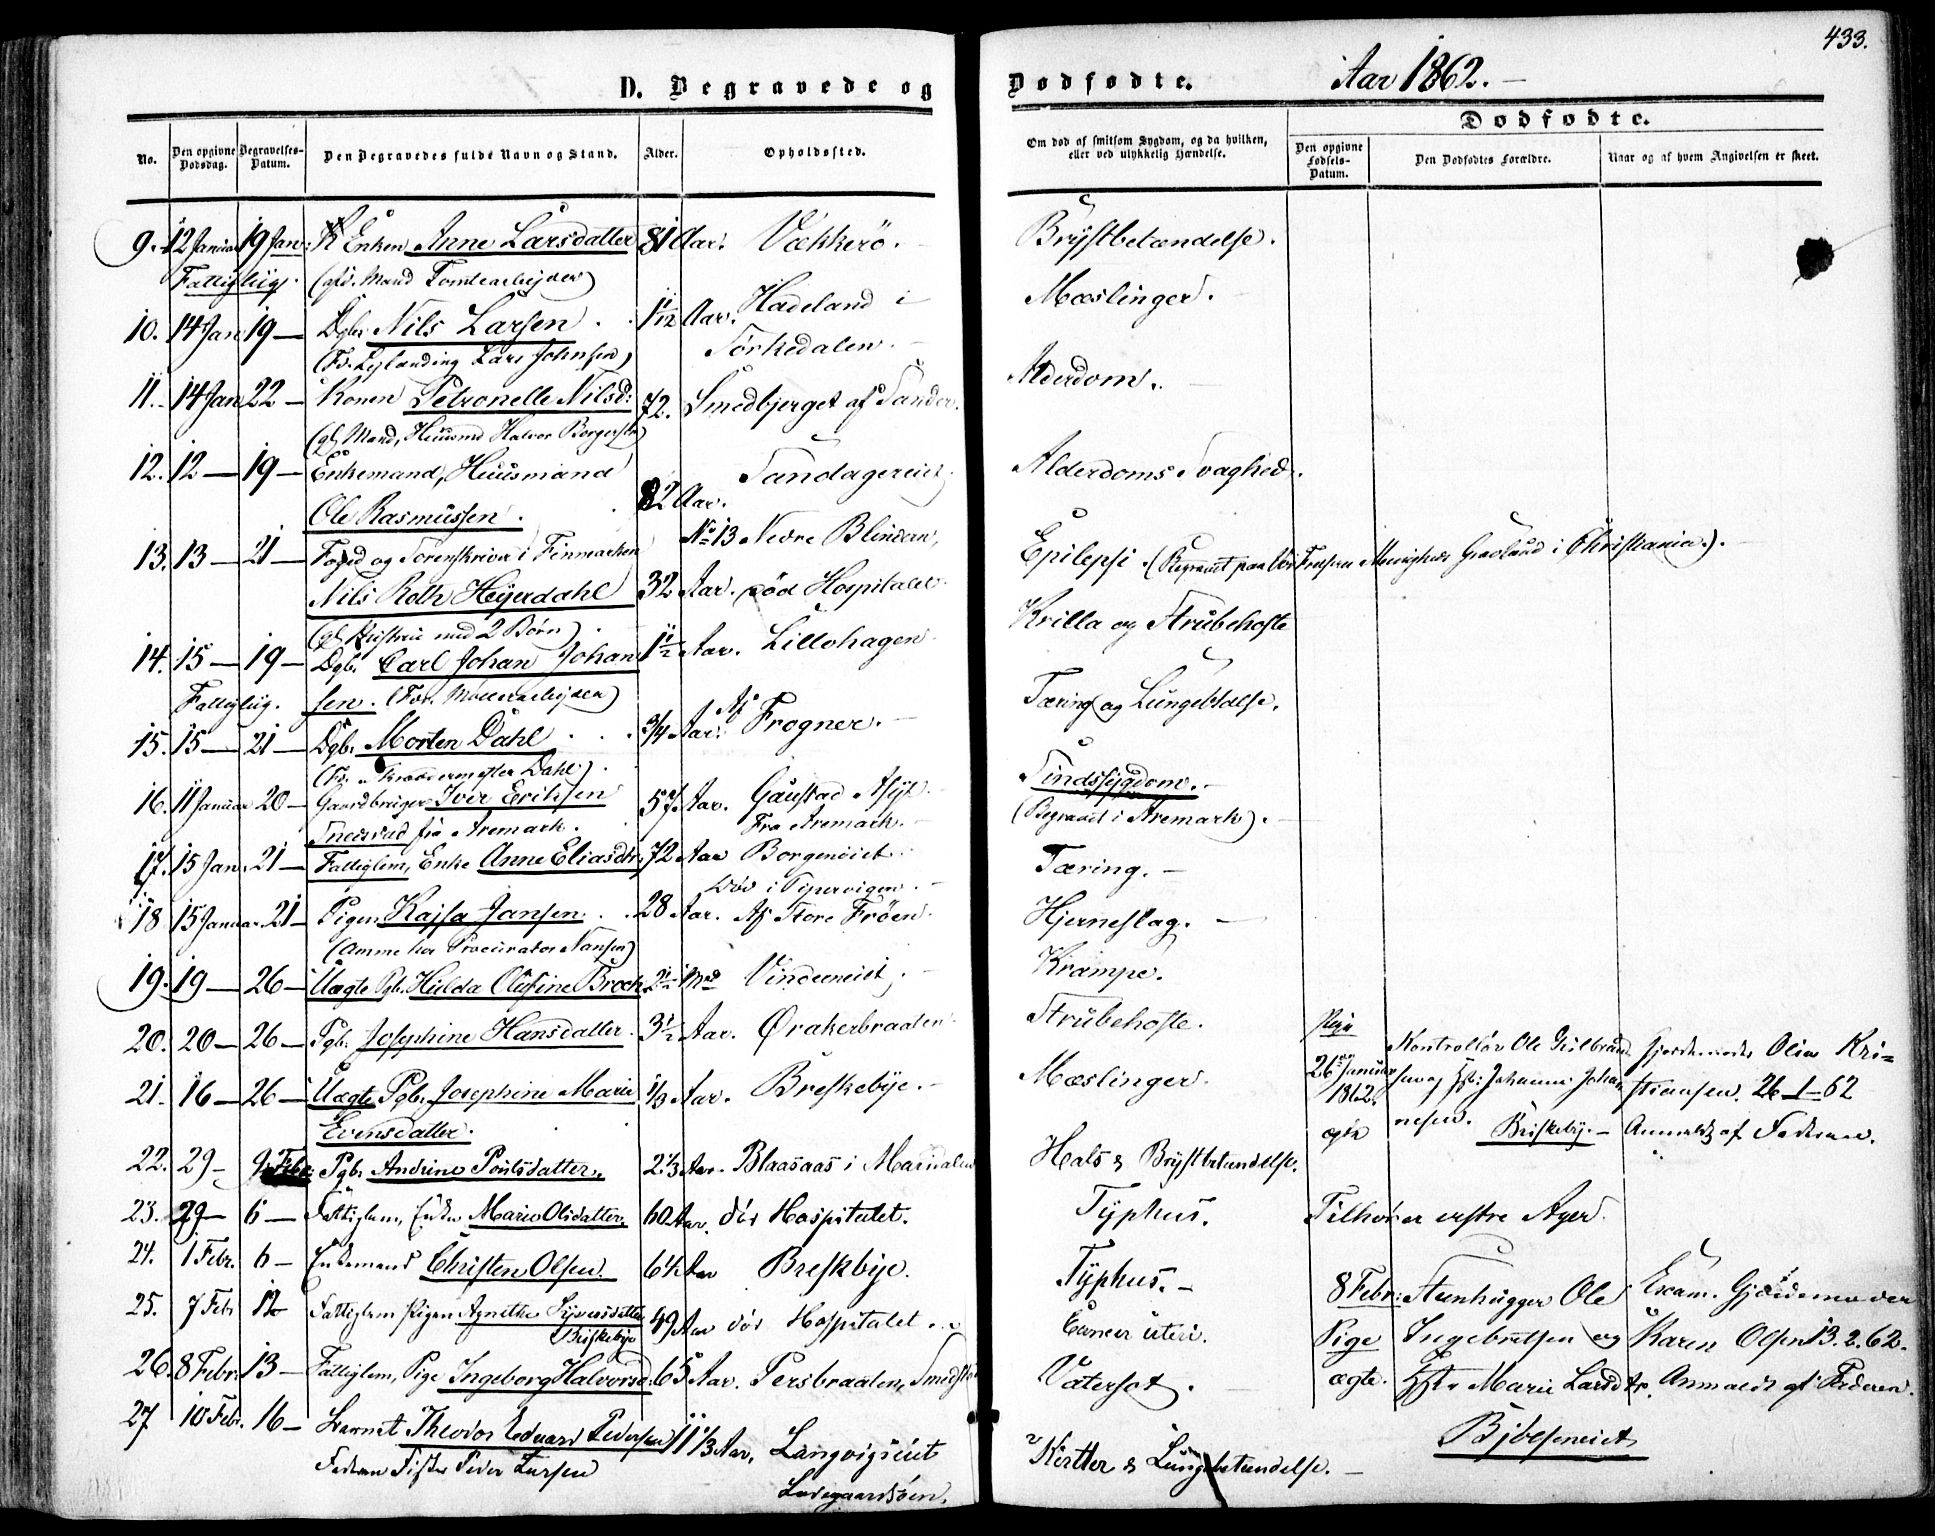 433.
D. Begravede og Dødfødte. Aar 1862.
No. Den opgivne Dødsdag. Begravelses-Datum. Den Begravedes fulde Navn og Stand. Alder. Opholdssted.
Om død af smitsom Sygdom, og da hvilken, eller ved ulykkelig Hændelse.
Dødfødte.
Den opgivne Fødsels-Datum. Den Dødfødtes Forældre. Naar og af hvem Angivelsen er skeet.
9. 12 Januar 19 Jan: Enken Anne Larsdatter 81 Aar. Vækkerö. Brÿstbetændelse.
Fattigliig. (afd. Mand Tomtearbejder)
10. 14 Jan 19 — Dgb. Nils Larsen 1 1/12 Aar. Hadeland i Sörkedalen. Mæslinger.
(Fd. Lars Johnsen)
11. 14 Jan 22 — Konen Petronelle Nilsd: 72. Smedbjerget af Sander. Alderdom.
(gl. Mand, Huusmd Halvor Borgersen)
12. 12 — 19 — Enkemand, Huusmand Ole Rasmussen. 82 Aar. Sandagereiet. Alderdoms Svaghed.
13. 13 — 21 — Foged og Sorenskriver i Finmarken Nils Roth Heyerdahl 32 Aar. No 13 Nedre Blindern, död Hospitalet. Epilepsi. (Begravet paa Vor Frelsers Menigheds Gravlund i Christiania).
(gl. med 2 Börn)
14. 15 — 19 — Dgb. Carl Johan Johansen. (Fdr. Möllerarbejder) 1 1/2 Aar. Lillohagen. Krilla og Strübehoste
Fattigliig.
15. 15 — 21 — Dgb. Morten Dahl 3/4 Aar. Af Frogner. Tæring og Lungebtdlse.
(Fd. Skræddermester Dahl)
16. 11 Januar 20 — Gaardbruger Iver Eriksen fra Aremark. 57 Aar. Gaustad Asÿl. Fra Aremark. Sindssÿgdom.
(Begravet i Aremark).
17. 15 Jan. 21 — Fattiglem, Enke Anne Eliasdtr 72 Aar Borgeneiet. Död i Pipervigen. Tæring.
18 15 Januar 21 — Pigen Kajsa Jansen 28 Aar. Af Store Fröen. Hjerneslag.
(Amme hos Procurator Nansen)
19. 19 — 26 — Uægte Pgb. Hulda Olufine Broch 2 1/2 Md Vindereneiet. Krampe.
20. 20 — 26 — Pgb. Josephine Hansdatter. 3 1/2 Aar. Ørakerbraaten. Strübehoste.
21. 16 — 26 — Uægte Pgb. Josephine Marie Evensdatter. 1/3 Aar. Breskebÿe. Mæslinger.
Pige 26 Januar 1862. ægte Kontrollör Ole Gulbrandsen og Hst: Johanne Johannesen. Briskebÿ. Gjordemoder Oline Kristiansen. 26-1-62 Anmeldt af Faderen.
22. 29 — 9 Febr: Pgb. Andrine Poulsdatter. 2 1/3 Aar. Blaasaas i Maridalen Hals & Brÿstbetændelse.
23. 29 — 6 — Fattiglem, Enke Marie Olsdatter. 60 Aar. död Hospitalet. Tÿphus. Tilhörer vestre Aker.
24. 1 Febr. 6 — Enkemand Christen Olsen. 64 Aar Breskbÿe. Tÿphus.
25. 7 Feb 12 Fattiglem Pigen Agnethe Syversdatter Briskebÿe 49 Aar död Hospitalet. Cancer uteri.
8 Febr: Pige ægte. Steenhugger Ole Ingebretsen og Hstr Marie Larsdtr. Bjölseneiet. Exam. Gjordemoder Karen Olsen 13.2.62. Anmeldt af Faderen.
26. 8 Febr. 13 — Fattiglem, Pige Ingeborg Halvorsd. 65 Aar. Persbraaten, Smedstad Vatersot.
27 10 Feb. 16 — Barnet Theodor Edvard Pedersen 11 1/3 Aar, Langvigseiet Ladegaardsöen. Kirtler & Lungebetændelse.
Faderen Fisker Peder Larsen